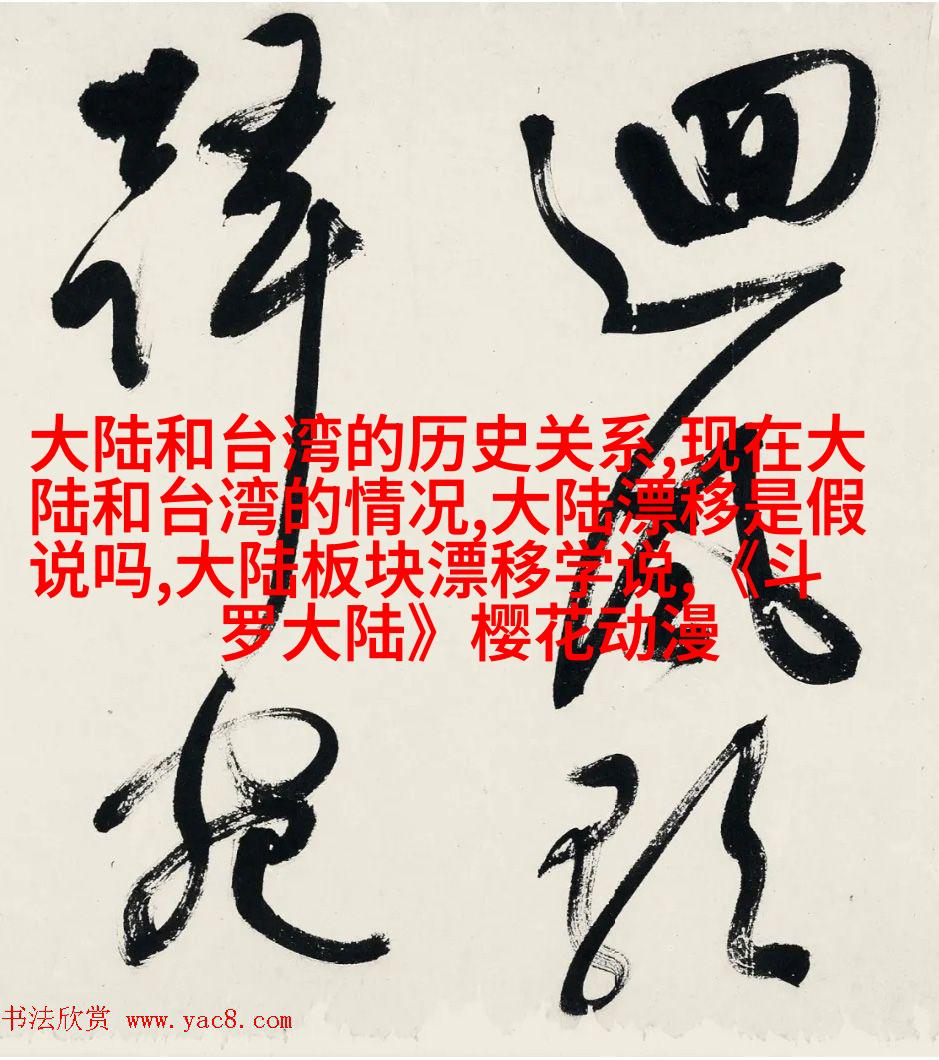 迴
風
大陆和台湾的历史关系,现在大
陆和台湾的情况,大陆漂移是假
说吗,大陆板块漂移学说,《斗
罗大陆》樱花动漫
书法欣赏 www.yac8.com